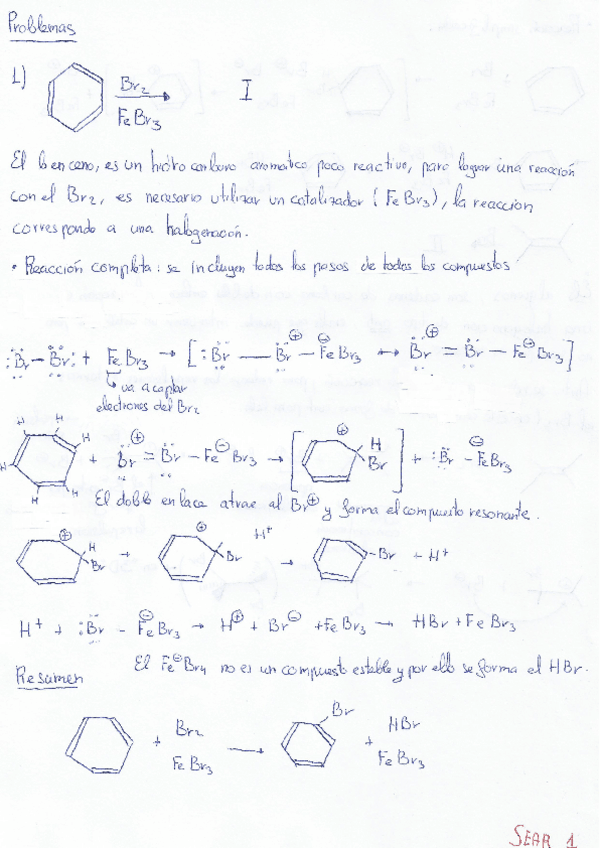 Problemas
1) Br2 / FeBr3 → I
El benceno, es un hidrocarburo aromatico poco reactivo, para lograr una reacción
con el Br2, es necesario utilizar un catalizador (FeBr3), la reaccion
corresponde a una halogenación.
• Reacción completa: se incluyen todos los pasos de todos los compuestos
:Br – Br: + FeBr3 → [:Br — Br⊕ – Fe⊖Br3 ↔ Br⊕ = Br – Fe⊖Br3]
↳ va a captar
electrones del Br2
H H H H H H + Br⊕ = Br – Fe⊖Br3 → [⊕ H Br] + :Br – Fe⊖Br3
El doble enlace atrae al Br⊕ y forma el compuesto resonante.
⊕ H Br → ⊕ Br H+ → Br + H+
H+ + :Br – Fe⊖Br3 → H⊕ + Br⊖ + FeBr3 → HBr + FeBr3
El Fe⊖Br4 no es un compuesto estable y por ello se forma el HBr.
Resumen
+ Br2 FeBr3 → Br + HBr FeBr3
SEAR 1